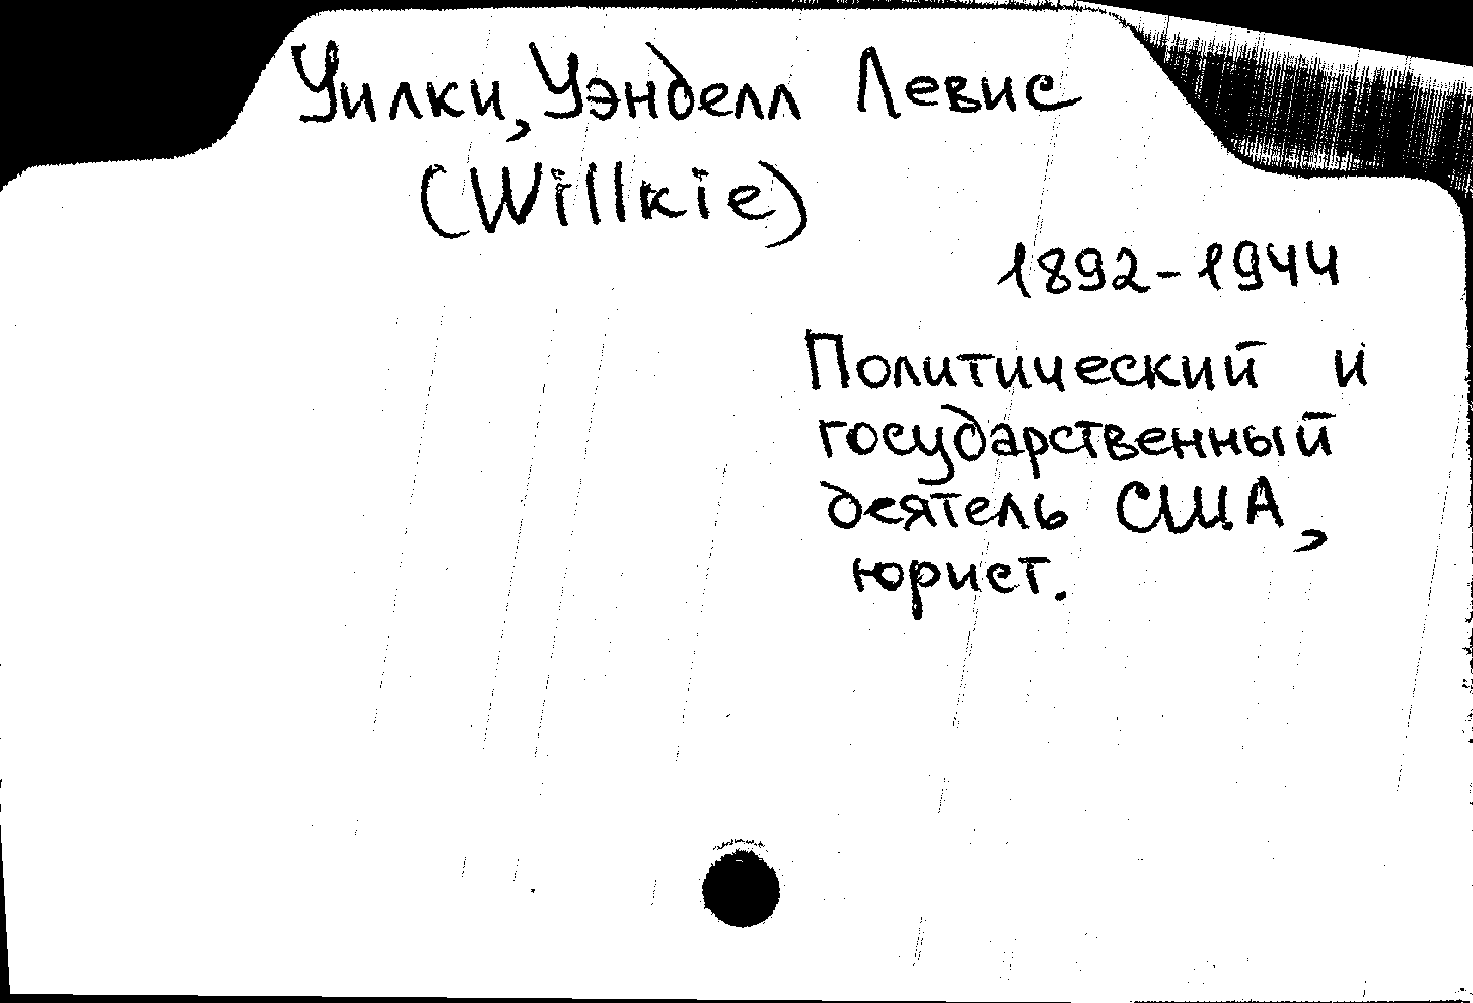 Уилки, Уэнделл Левис
(Willkie)
1892-1944
Политический и
государственный
деятель США,
юрист.